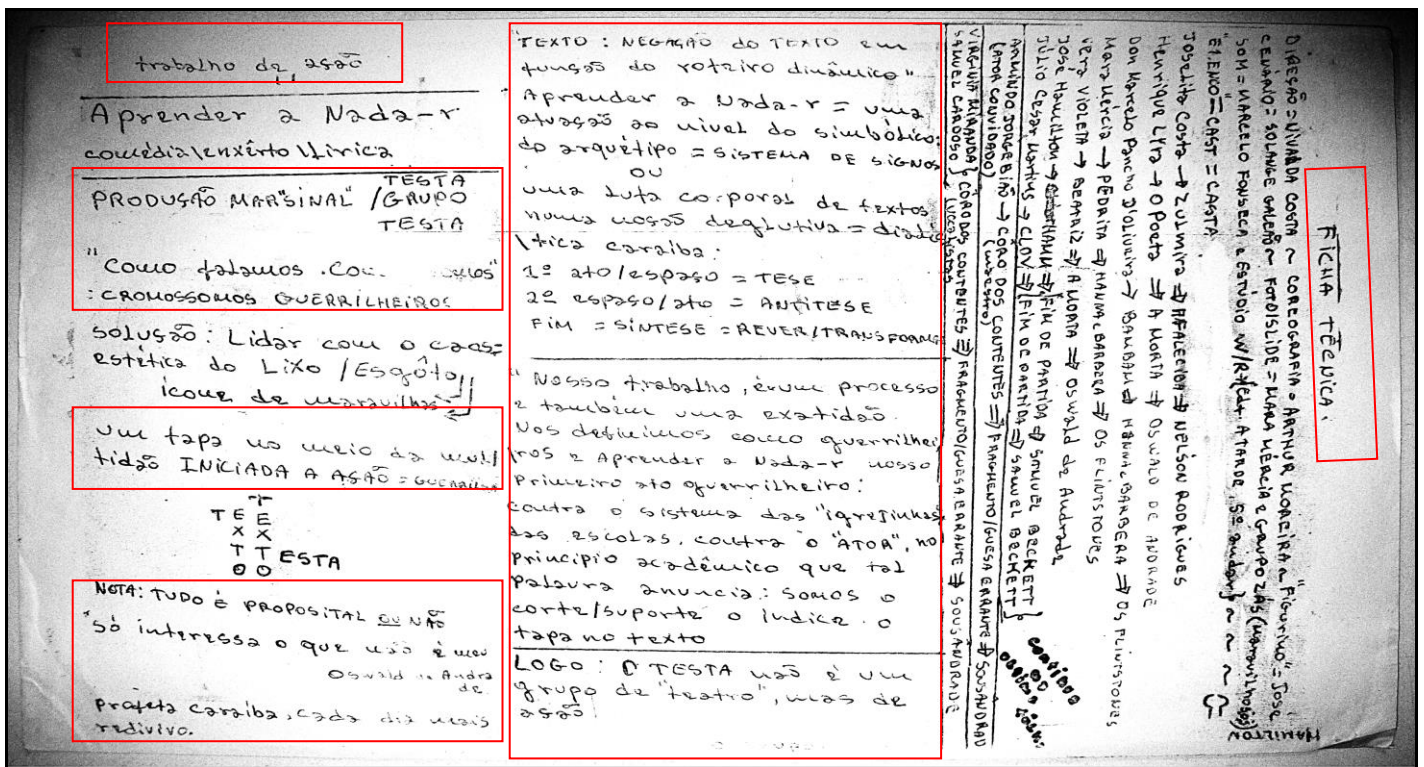 trabalho de ação
Aprender a Nada-r
comédia\enxêrto\lírica
TESTA
PRODUSÃO MAR"SINAL" /GRUPO
TESTA
"Como falamos . Co
: CROMOSSOMOS GUERRILHEIROS
solusão: Lidar com o caos=
estética do LiXo /Esgôto
ícone de maravilhas
um tapa no meio da mul/
tidão INICIADA A ASÃO = GUERRILH
T
T E E
X X
T T ESTA
O O
NOTA: TUDO É PROPOSITAL OU NÃO
"só interessa o que não é meu
Oswald de Andra
de
profeta caraíba, cada dia mais
redivivo.
"TEXTO : NEGASÃO do TEXTO em
funsão do roteiro dinâmico"
Aprender a Nada-r = uma
atuasão ao nível do simbólico:
do arquétipo = SISTEMA DE SIGNOS
OU
uma luta co-poral de textos
numa nosão deglutiva = dialé
\tica caraíba.
1º ato/espaso = TESE
2º espaso/ato = ANTÍTESE
FiM = SÍNTESE = REVER/TRANSFORMA
"Nosso trabalho, é um processo
e também uma exatidão.
Nos definimos como guerrilhei
\ros e Aprender a Nada-r nosso
primeiro ato guerrilheiro:
contra o sistema das "igrejinhas
das escolas, contra o "ATOR", no
princípio acadêmico que tal
palavra anuncia: somos o
corte/suporte o índice o
tapa no texto
LOGO : O TESTA não é um
grupo de "teatro", mas de
asão.
FICHA TÉCNICA:
DIRESÃO = VIVALDA COSTA ~ COREOGRAFIA = ARTHUR MOREIRA ~ "FIGURINO" = JOSE HAMILTON
CENÁRIO = SOLANGE GALEÃO ~ FOTO/SLIDE = MARA MÉRCIA e GRUPO ZÁS (maravilhoso)
SOM = MARCELO FONSECA e ESTÚDIO A TARDE, 5º andar} ~ ~ ~
"ELENCO" = CAST = CASTA
Joselita Costa → Zulmira ⇒ A FALECIDA ⇒ NELSON RODRIGUES
Henrique Lira → O Poeta ⇒ A MORTA ⇒ OSWALD DE ANDRADE
Don Marcelo Pancho D'Oliveira → BAMBAM ⇒ HANNA e BARBERA ⇒ OS FLINTSTONES
Mara Mércia → PEDRITA ⇒ HANNA e BARBERA ⇒ OS FLINTSTONES
Vera Violeta → BEATRIZ ⇒ A MORTA ⇒ Oswald de Andrade
José Hamilton → HAMM ⇒ FIM DE PARTIDA ⇒ SAMUEL BECKETT
Júlio Cesar Martins → CLOV ⇒ FIM DE PARTIDA ⇒ SAMUEL BECKETT
ARMINDO JORGE BIÃO → CORO DOS CONTENTES ⇒ FRAGMENTO/GUESA ERRANTE ⇒ SOUSANDRADE
(ATOR CONVIDADO) (maestro)
VIRGÍNIA MIRANDA} CÔRO DOS CONTENTES ⇒ FRAGMENTO/GUESA ERRANTE ⇒ SOUSANDRADE
SAMUEL CARDOSO }